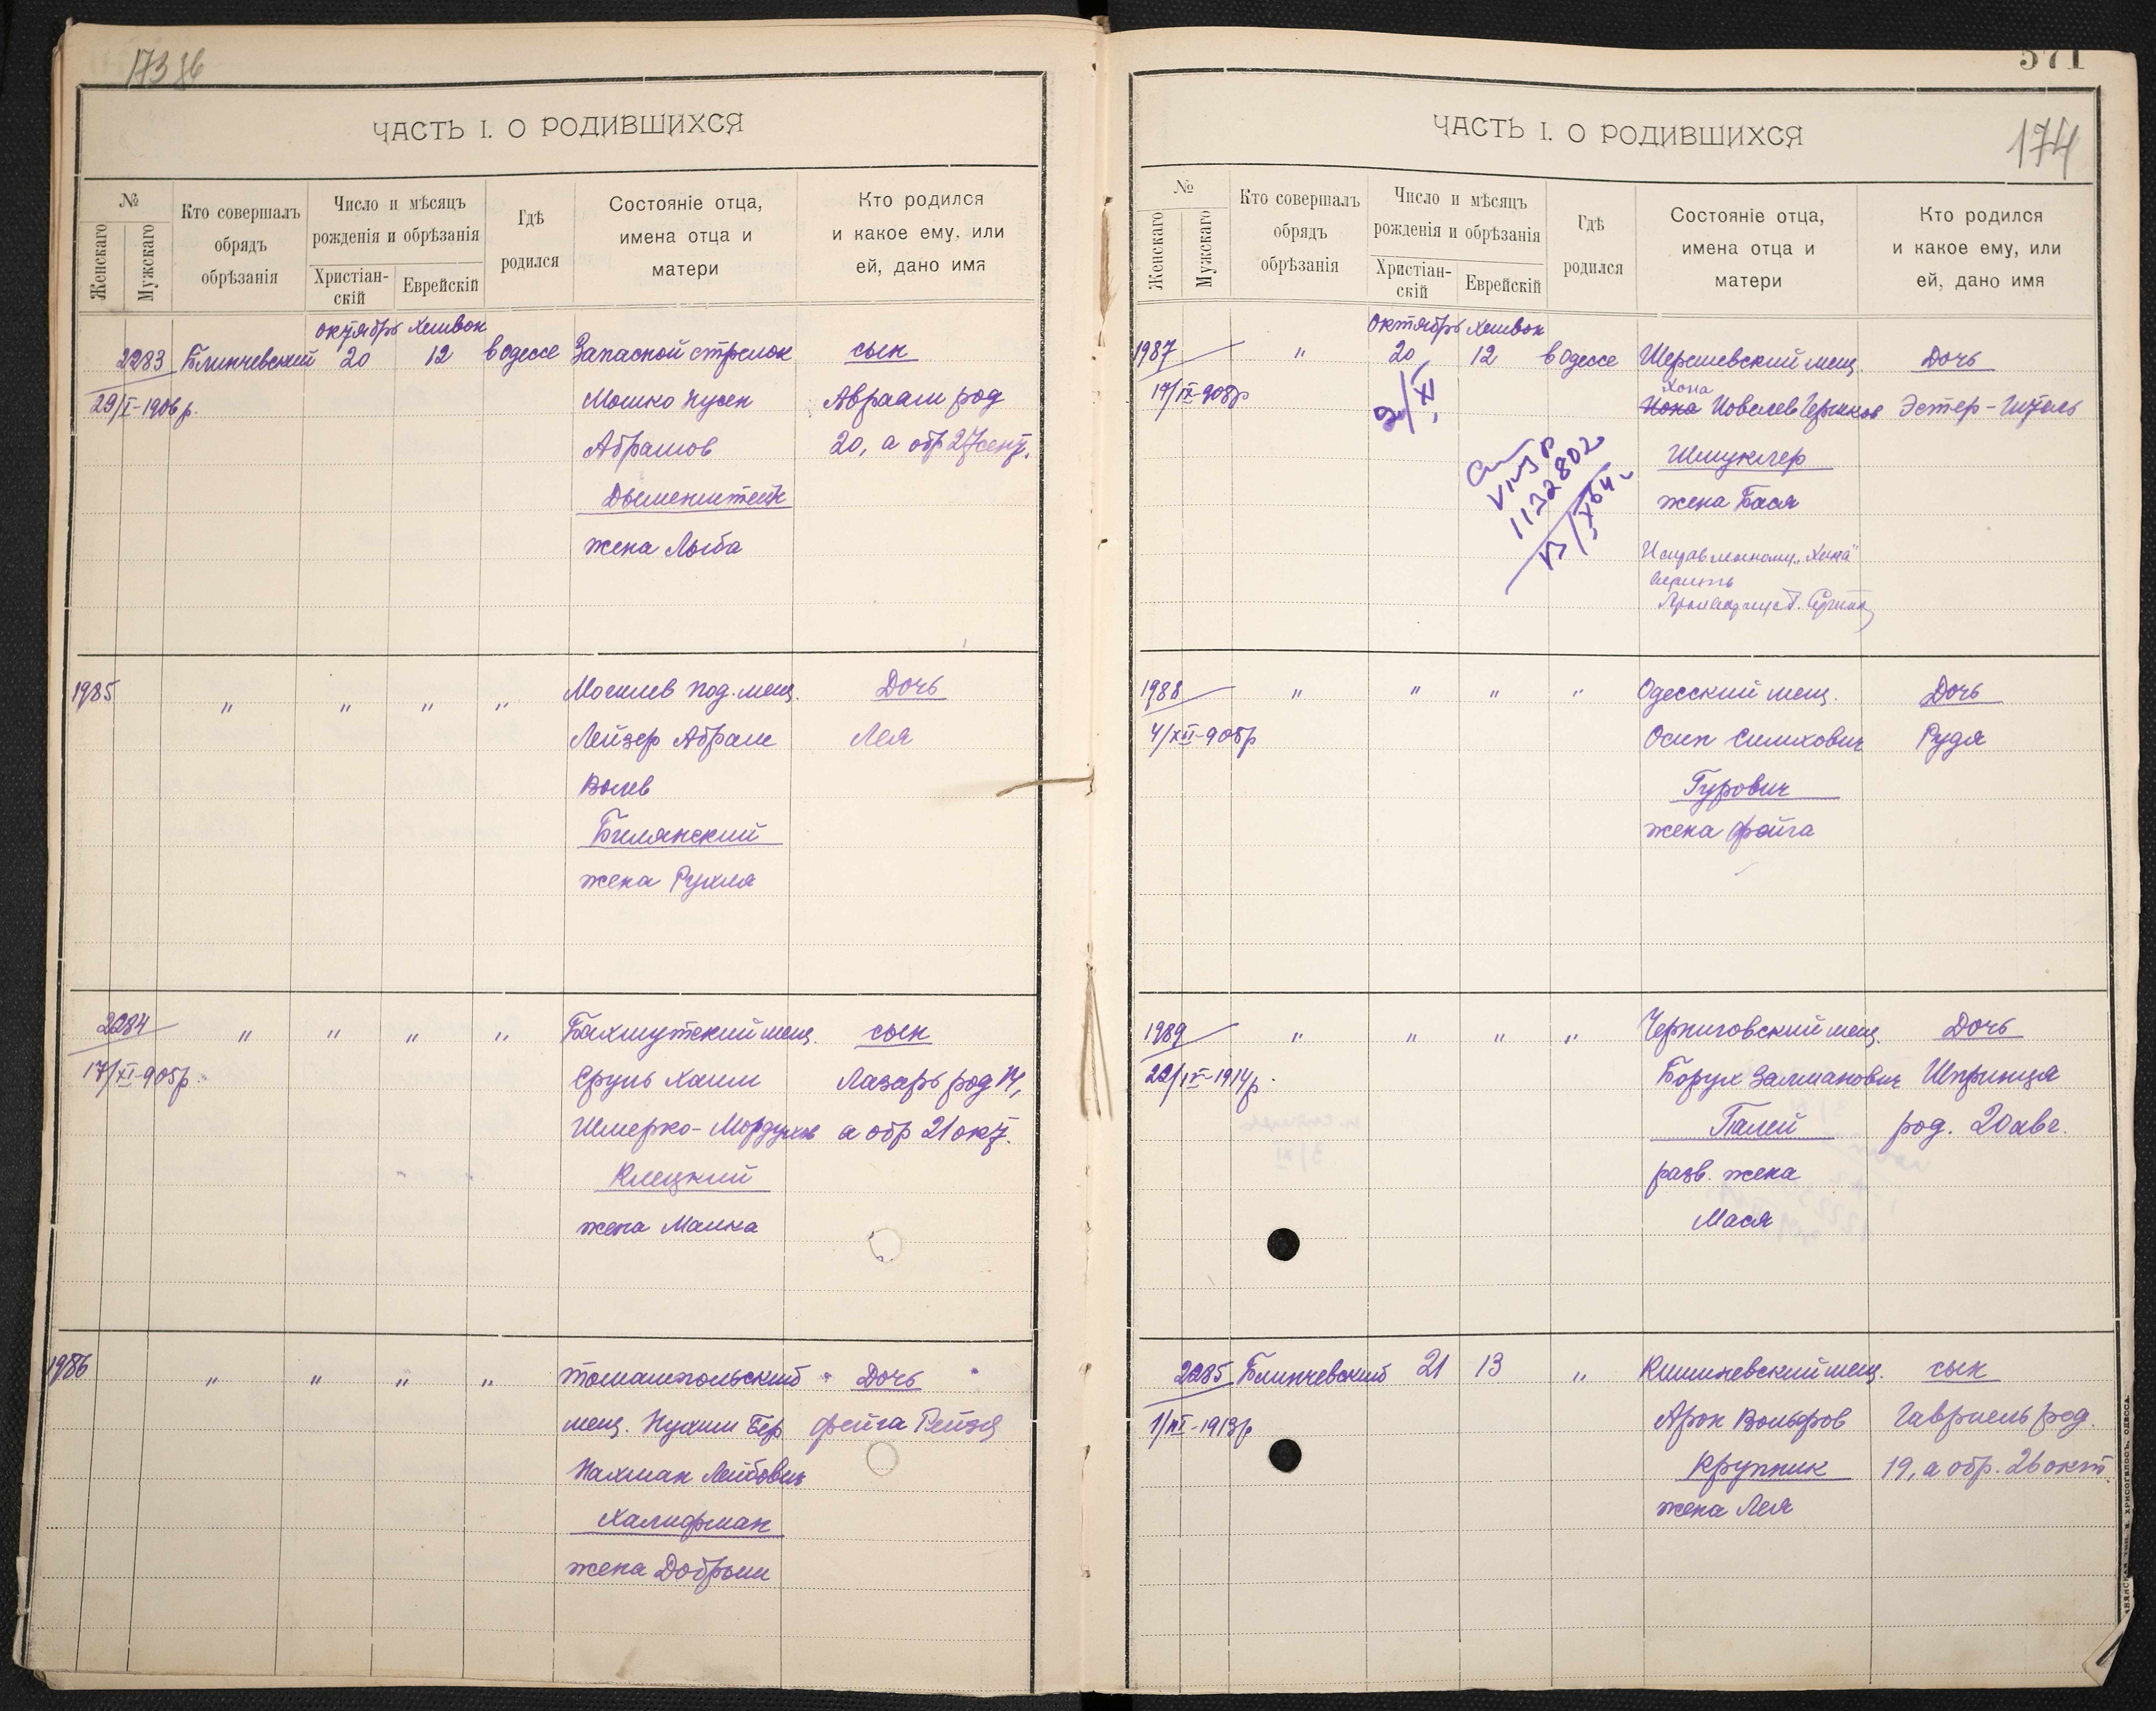 173 об
ЧАСТЬ I. О РОДИВШИХСЯ
№
Женскаго
Мужскаго
Кто совершалъ обрядъ обрѣзанія
Число и мѣсяцъ рожденія и обрѣзанія
Христіан-скій
Еврейскій
Гдѣ родился
Состояніе отца, имена отца и матери
Кто родился и какое ему, или ей, дано имя
октябрь хешвон
2283 Блинчевский 20 12 в одессе Запасной стрелок сын
29/I-1906р. Мошко Нусен Авраам род
Абрамов 20, а обр 27 сент.
Дыменштейн
жена Лыба
1985 " " " " Могилев под. мещ. Дочь
Лейзер Абрам Лея
Волев
Билянский
жена Рухля
2284 " " " " Бахмутский мещ. сын
17/XI-905р. Сруль Хаим Лазарь род 14,
Шмерко-Мордухов а обр 21 окт.
Клецкий
жена Манка
1986 " " " " томашпольский Дочь
мещ. Нухим Бер фейга Рейзя
Нахман Лейбович
Халифман
жена Добрыш
571
174
ЧАСТЬ I. О РОДИВШИХСЯ
№
Женскаго
Мужскаго
Кто совершалъ обрядъ обрѣзанія
Число и мѣсяцъ рожденія и обрѣзанія
Христіан-скій
Еврейскій
Гдѣ родился
Состояніе отца, имена отца и матери
Кто родился и какое ему, или ей, дано имя
Октябрь хешвон
1987 " 20 12 в одессе Шерешевский мещ. Дочь
Хона
17/IX-908р Иона Иовелев Герцков Эстер-Гитель
2/XI
Шмуклер
1132802
жена Бася
Исправленному "Хона"
верить
1988 " " " " Одесский мещ. Дочь
4/XII-905р Осип Симхович Рудя
Гурович
жена фейга
1989 " " " " Черниговский мещ. Дочь
22/IV-1914р. Борух Залманович Шпринца
Палей род. 20 авг.
разв. жена
Мася
2285 Блинчевский 21 13 " Кишиневский мещ. сын
1/III-1913р Арон Вольфов Гавриель род.
Крупник 19, а обр. 26 окт.
жена Лея